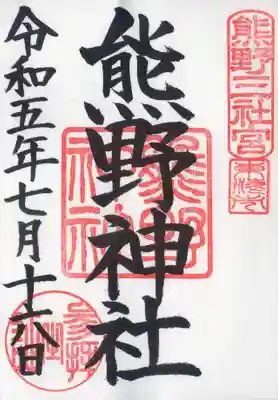 熊野三社宮
熊野神社
熊野
神社
令和五年七月十六日